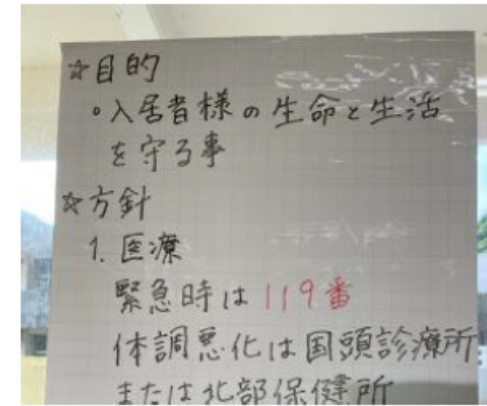 ☆目的
。入居者様の生命と生活
を守る事
☆方針
1. 医療
緊急時は119番
体調悪化は国頭診療所
または北部保健所